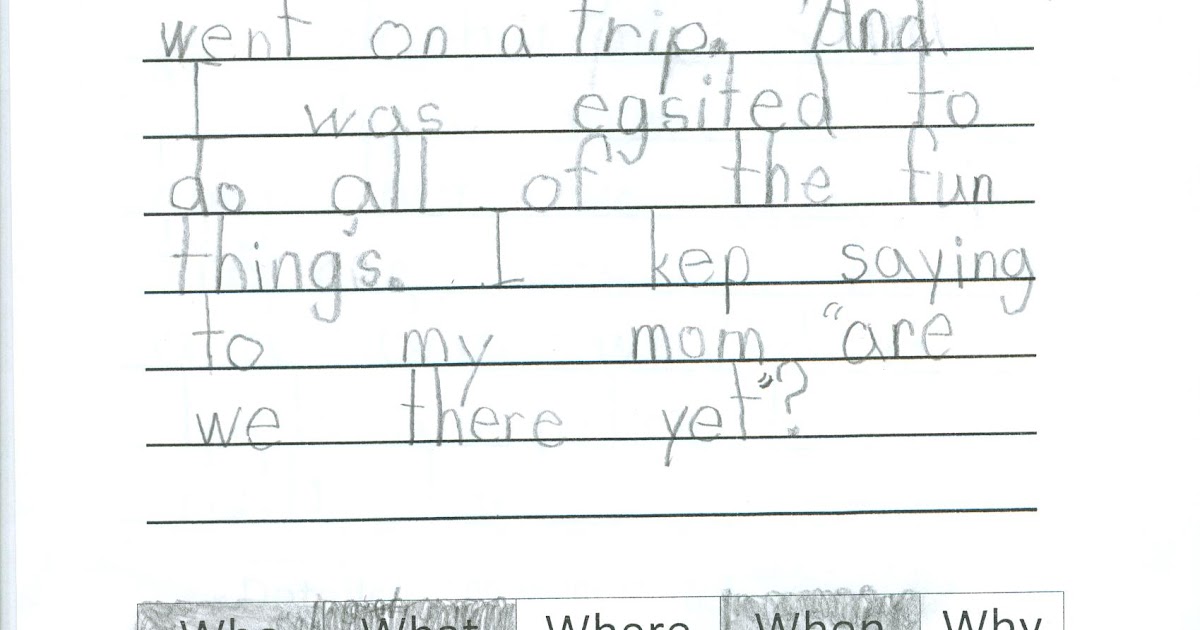 went on a trip. And
I was egsited to
do all of the fun
things. I kep saying
to my mom "are
we there yet"?
Who What Where When Why